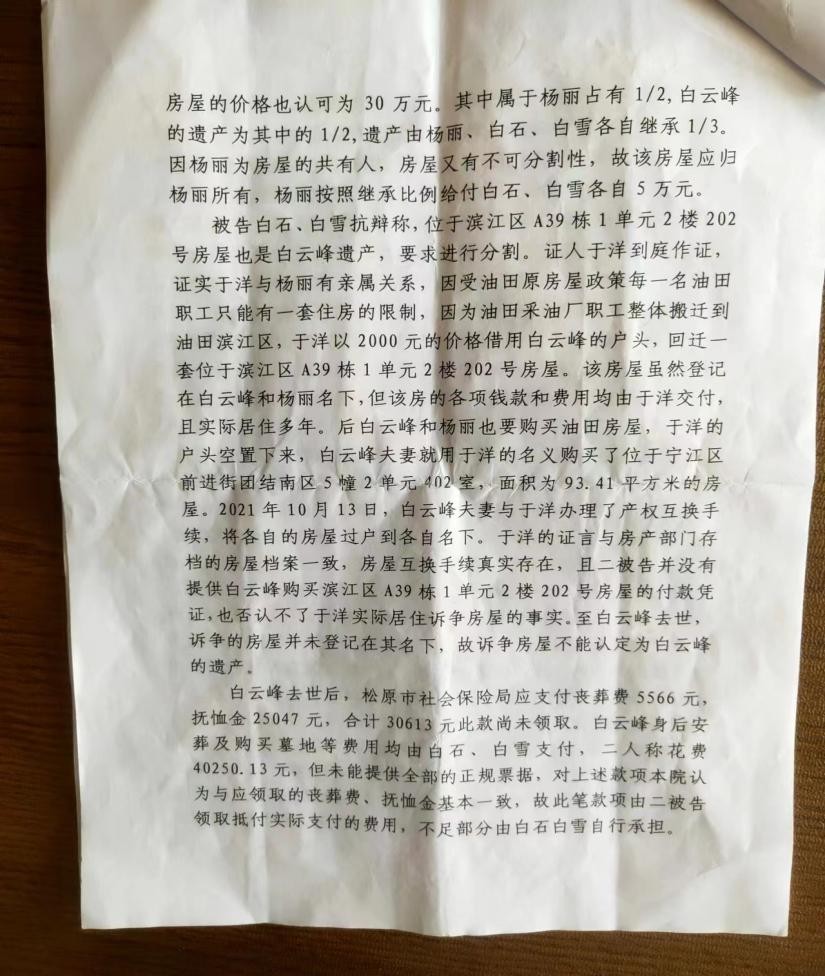 房屋的价格也认可为 30 万元。其中属于杨丽占有 1/2,白云峰
的遗产为其中的 1/2,遗产由杨丽、白石、白雪各自继承 1/3。
因杨丽为房屋的共有人，房屋又有不可分割性，故该房屋应归
杨丽所有，杨丽按照继承比例给付白石、白雪各自 5 万元。
被告白石、白雪抗辩称，位于滨江区 A39 栋 1 单元 2 楼 202
号房屋也是白云峰遗产，要求进行分割。证人于洋到庭作证，
证实于洋与杨丽有亲属关系，因受油田原房屋政策每一名油田
职工只能有一套住房的限制，因为油田采油厂职工整体搬迁到
油田滨江区，于洋以 2000 元的价格借用白云峰的户头，回迁一
套位于滨江区 A39 栋 1 单元 2 楼 202 号房屋。该房屋虽然登记
在白云峰和杨丽名下,但该房的各项钱款和费用均由于洋交付，
且实际居住多年。后白云峰和杨丽也要购买油田房屋，于洋的
户头空置下来，白云峰夫妻就用于洋的名义购买了位于宁江区
前进街团结南区 5 幢 2 单元 402 室，面积为 93.41 平方米的房
屋。2021 年 10 月 13 日，白云峰夫妻与于洋办理了产权互换手
续，将各自的房屋过户到各自名下。于洋的证言与房产部门存
档的房屋档案一致，房屋互换手续真实存在，且二被告并没有
提供白云峰购买滨江区 A39 栋 1 单元 2 楼 202 号房屋的付款凭
证,也否认不了于洋实际居住诉争房屋的事实。至白云峰去世，
诉争的房屋并未登记在其名下，故诉争房屋不能认定为白云峰
的遗产。
白云峰去世后，松原市社会保险局应支付丧葬费 5566 元，
抚恤金 25047 元，合计 30613 元此款尚未领取。白云峰身后安
葬及购买墓地等费用均由白石、白雪支付，二人称花费
40250.13 元，但未能提供全部的正规票据，对上述款项本院认
为与应领取的丧葬费、抚恤金基本一致，故此笔款项由二被告
领取抵付实际支付的费用，不足部分由白石白雪自行承担。